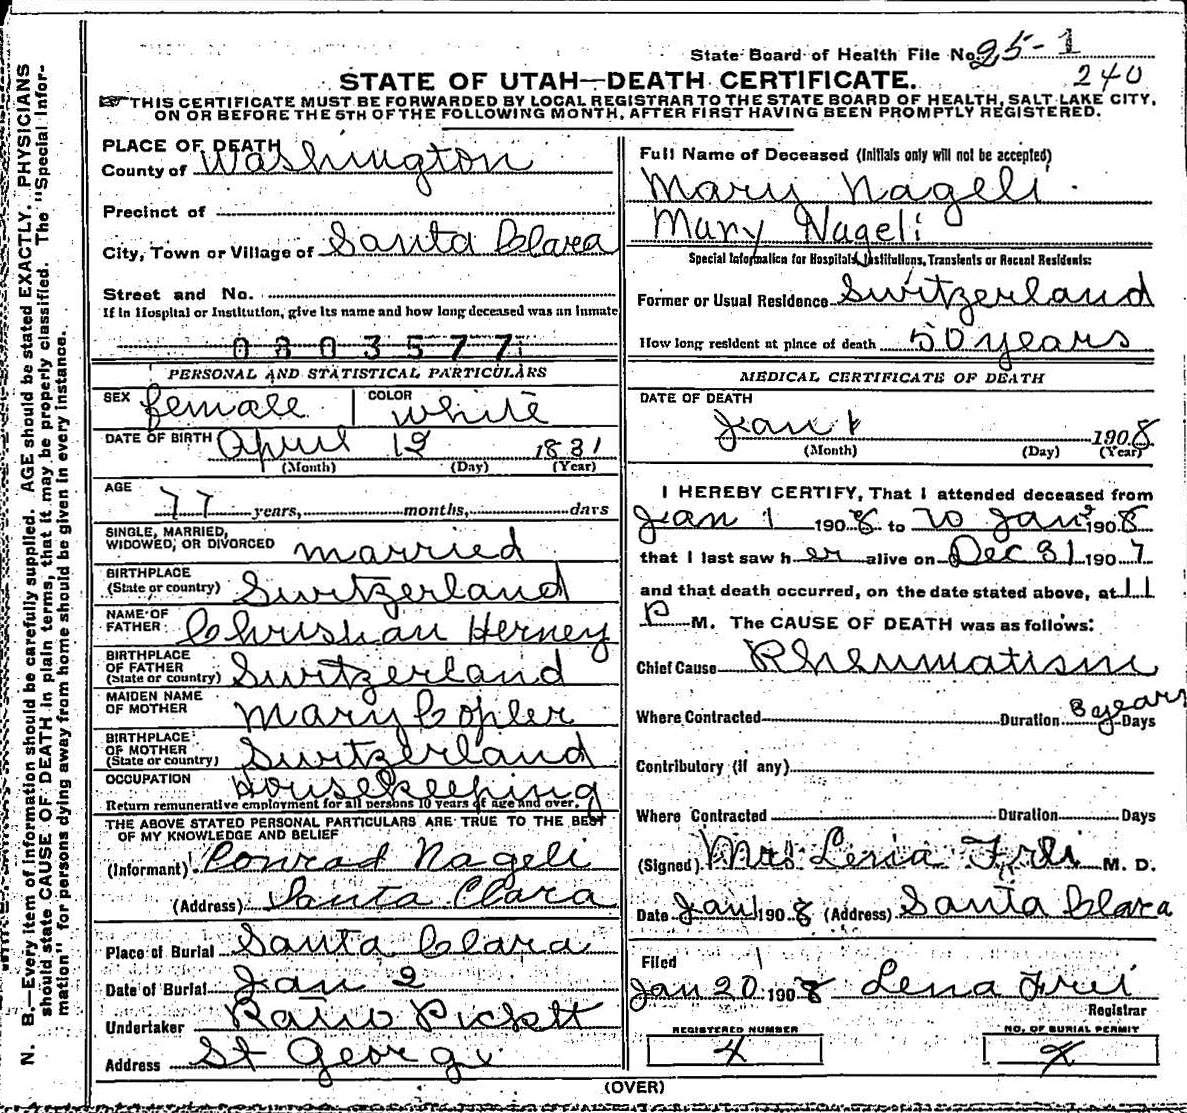 State Board of Health File No. 25-1
240
STATE OF UTAH—DEATH CERTIFICATE.
THIS CERTIFICATE MUST BE FORWARDED BY LOCAL REGISTRAR TO THE STATE BOARD OF HEALTH, SALT LAKE CITY,
ON OR BEFORE THE 5TH OF THE FOLLOWING MONTH, AFTER FIRST HAVING BEEN PROMPTLY REGISTERED.
PLACE OF DEATH
County of Washington
Precinct of
City, Town or Village of Santa Clara
Street and No.
If in Hospital or Institution, give its name and how long deceased was an inmate
0803577
PERSONAL AND STATISTICAL PARTICULARS
SEX female COLOR white
DATE OF BIRTH April 12 1831
(Month) (Day) (Year)
AGE 77 years, months, days
SINGLE, MARRIED,
WIDOWED, OR DIVORCED married
BIRTHPLACE
(State or country) Switzerland
NAME OF
FATHER Christian Herney
BIRTHPLACE
OF FATHER
(State or country) Switzerland
MAIDEN NAME
OF MOTHER Mary Copler
BIRTHPLACE
OF MOTHER
(State or country) Switzerland
OCCUPATION Housekeeping
Return remunerative employment for all persons 10 years of age and over.
THE ABOVE STATED PERSONAL PARTICULARS ARE TRUE TO THE BEST
OF MY KNOWLEDGE AND BELIEF
(Informant) Conrad Nageli
(Address) Santa Clara
Place of Burial Santa Clara
Date of Burial Jan 2
Undertaker Pickett
Address St George
Full Name of Deceased (Initials only will not be accepted)
Mary Nageli
Mary Nageli
Special Information for Hospitals, Institutions, Transients or Recent Residents:
Former or Usual Residence Switzerland
How long resident at place of death 50 years
MEDICAL CERTIFICATE OF DEATH
DATE OF DEATH
Jan 1 1908
(Month) (Day) (Year)
I HEREBY CERTIFY, That I attended deceased from
Jan 1 1908 to Jan 1908
that I last saw her alive on Dec 31 1907
and that death occurred, on the date stated above, at 11
P M. The CAUSE OF DEATH was as follows:
Chief Cause Rheumatism
Where Contracted Duration 3 years Days
Contributory (if any)
Where Contracted Duration Days
(Signed) Mrs Lena Frei M. D.
Date Jan 1 1908 (Address) Santa Clara
Filed
Jan 20 1908 Lena Frei
Registrar
REGISTERED NUMBER
NO. OF BURIAL PERMIT
(OVER)
N. B.—Every item of information should be carefully supplied. AGE should be stated EXACTLY. PHYSICIANS
should state CAUSE OF DEATH in plain terms, that it may be properly classified. The "Special Infor-
mation" for persons dying away from home should be given in every instance.